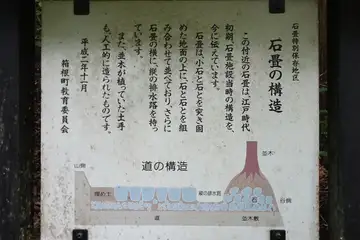 石畳特別保存地区
石畳の構造
この付近の石畳は、江戸時代
初期、石畳施設当時の構造を、
今に伝えています。
石畳は、小石と石とを突き固
めた地面の上に、石と石とを組
み合わせて並べており、さらに
石畳の横に、縦の排水路を持っ
ています。
また、並木が植っていた土手
も、人工的に造られたものです。
平成二年十二月
箱根町教育委員会
道の構造
並木
山側
埋め土
縦の排水路
石
谷側
道
並木敷